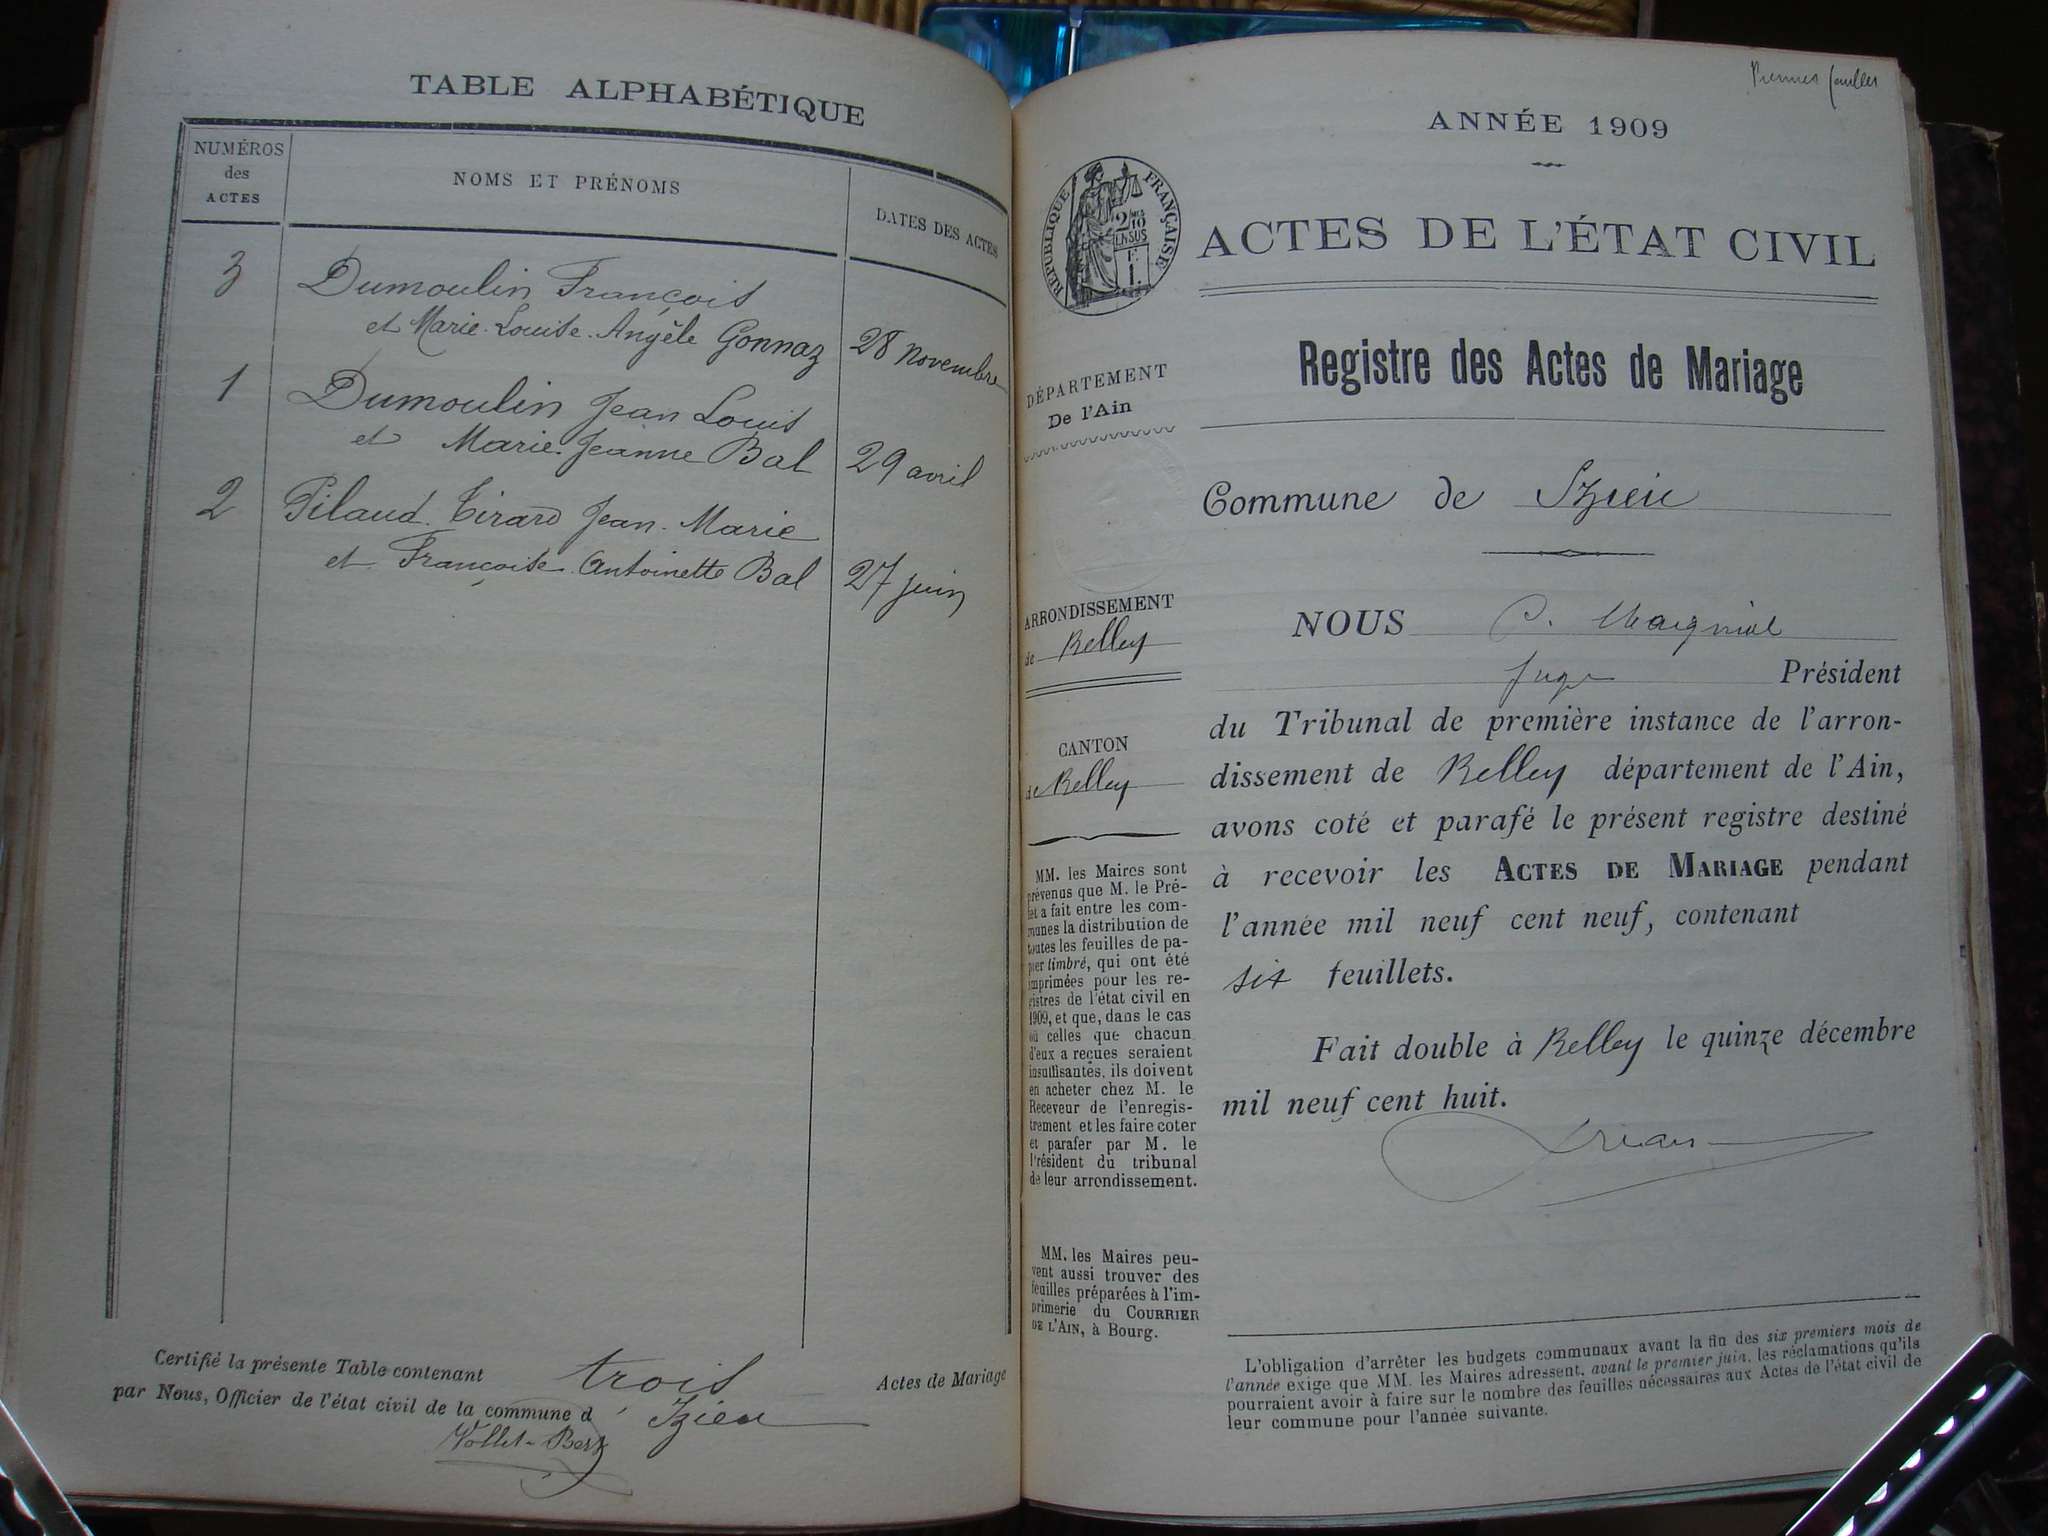 TABLE ALPHABÉTIQUE
NUMÉROS
des
ACTES
NOMS ET PRÉNOMS
DATES DES ACTES
3 Dumoulin François
et Marie-Louise-Angèle Gonnaz 28 novembre
1 Dumoulin Jean Louis
et Marie-Jeanne Bal 29 avril
2 Pilaud-Tirard Jean-Marie
et Françoise-Antoinette Bal 27 juin
Certifié la présente Table contenant trois Actes de Mariage
par Nous, Officier de l'état civil de la commune d'Izieu
ANNÉE 1909
RÉPUBLIQUE FRANÇAISE
2/10
EN SUS
ACTES DE L'ÉTAT CIVIL
Registre des Actes de Mariage
DÉPARTEMENT
De l'Ain
Commune de Izieu
ARRONDISSEMENT
de Belley
CANTON
de Belley
MM. les Maires sont
prévenus que M. le Pré-
fet a fait entre les com-
munes la distribution de
toutes les feuilles de pa-
pier timbré, qui ont été
imprimées pour les re-
gistres de l'état civil en
1909, et que, dans le cas
où celles que chacun
d'eux a reçues seraient
insuffisantes, ils doivent
en acheter chez M. le
Receveur de l'enregis-
trement et les faire coter
et parafer par M. le
Président du tribunal
de leur arrondissement.
MM. les Maires peu-
vent aussi trouver des
feuilles préparées à l'im-
primerie du COURRIER
DE L'AIN, à Bourg.
NOUS
Juge Président
du Tribunal de première instance de l'arron-
dissement de Belley département de l'Ain,
avons coté et parafé le présent registre destiné
à recevoir les ACTES DE MARIAGE pendant
l'année mil neuf cent neuf, contenant
six feuillets.
Fait double à Belley le quinze décembre
mil neuf cent huit.
L'obligation d'arrêter les budgets communaux avant la fin des six premiers mois de
l'année exige que MM. les Maires adressent, avant le premier juin, les réclamations qu'ils
pourraient avoir à faire sur le nombre des feuilles nécessaires aux Actes de l'état civil de
leur commune pour l'année suivante.